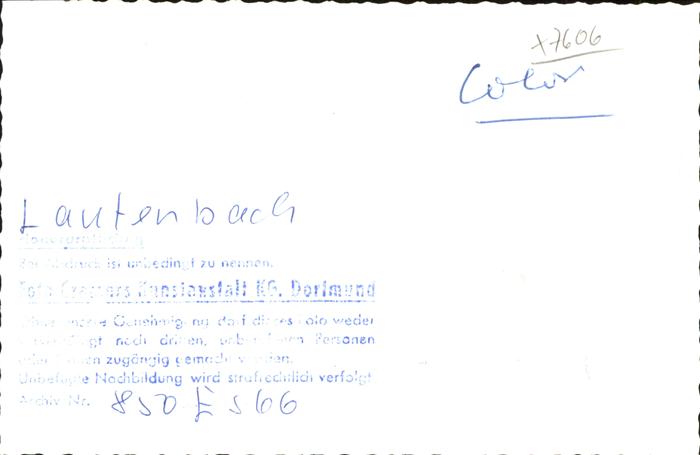 x7606
Color
Lautenbach
ist unbedingt zu nennen.
Foto Kunstanstalt KG. Dortmund
Genehmigung darf dieses Foto weder
noch dritten, Personen
zugängig gemacht werden.
Unbefugte Nachbildung wird strafrechtlich verfolgt
Archiv Nr. 850 E 566